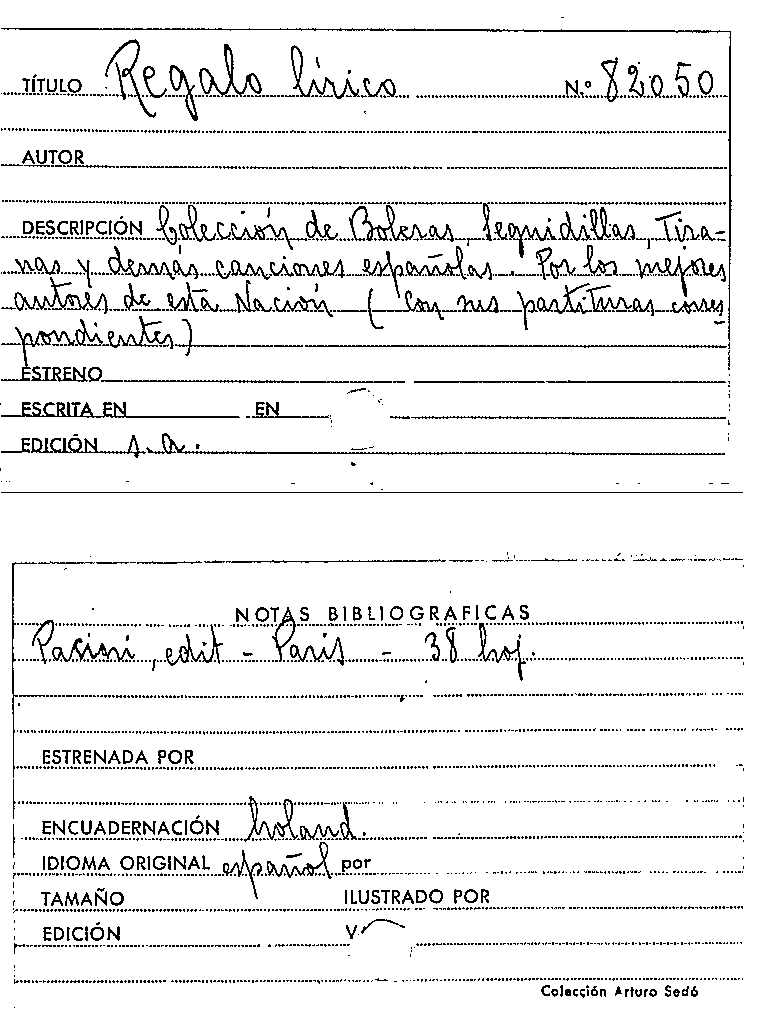 TÍTULO Regalo lírico N.º 82050
AUTOR
DESCRIPCIÓN Colección de Boleras, Seguidillas, Tira-
nas y demás canciones españolas. Por los mejores
autores de esta Nación (Con sus partituras corres
pondientes)
ESTRENO
ESCRITA EN EN
EDICIÓN s.a.
NOTAS BIBLIOGRAFICAS
Pacini, edit - Paris - 38 hoj.
ESTRENADA POR
ENCUADERNACIÓN holand.
IDIOMA ORIGINAL español por
TAMAÑO ILUSTRADO POR
EDICIÓN V
Colección Arturo Sedó